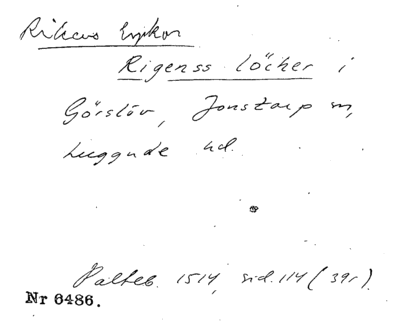 Rikeus Enkor
Rigenss löcher i
Görslöv, Jonstorp sn,
Luggude hd.
Palteb. 1514, sid. 114 (39r).
Nr 6486.